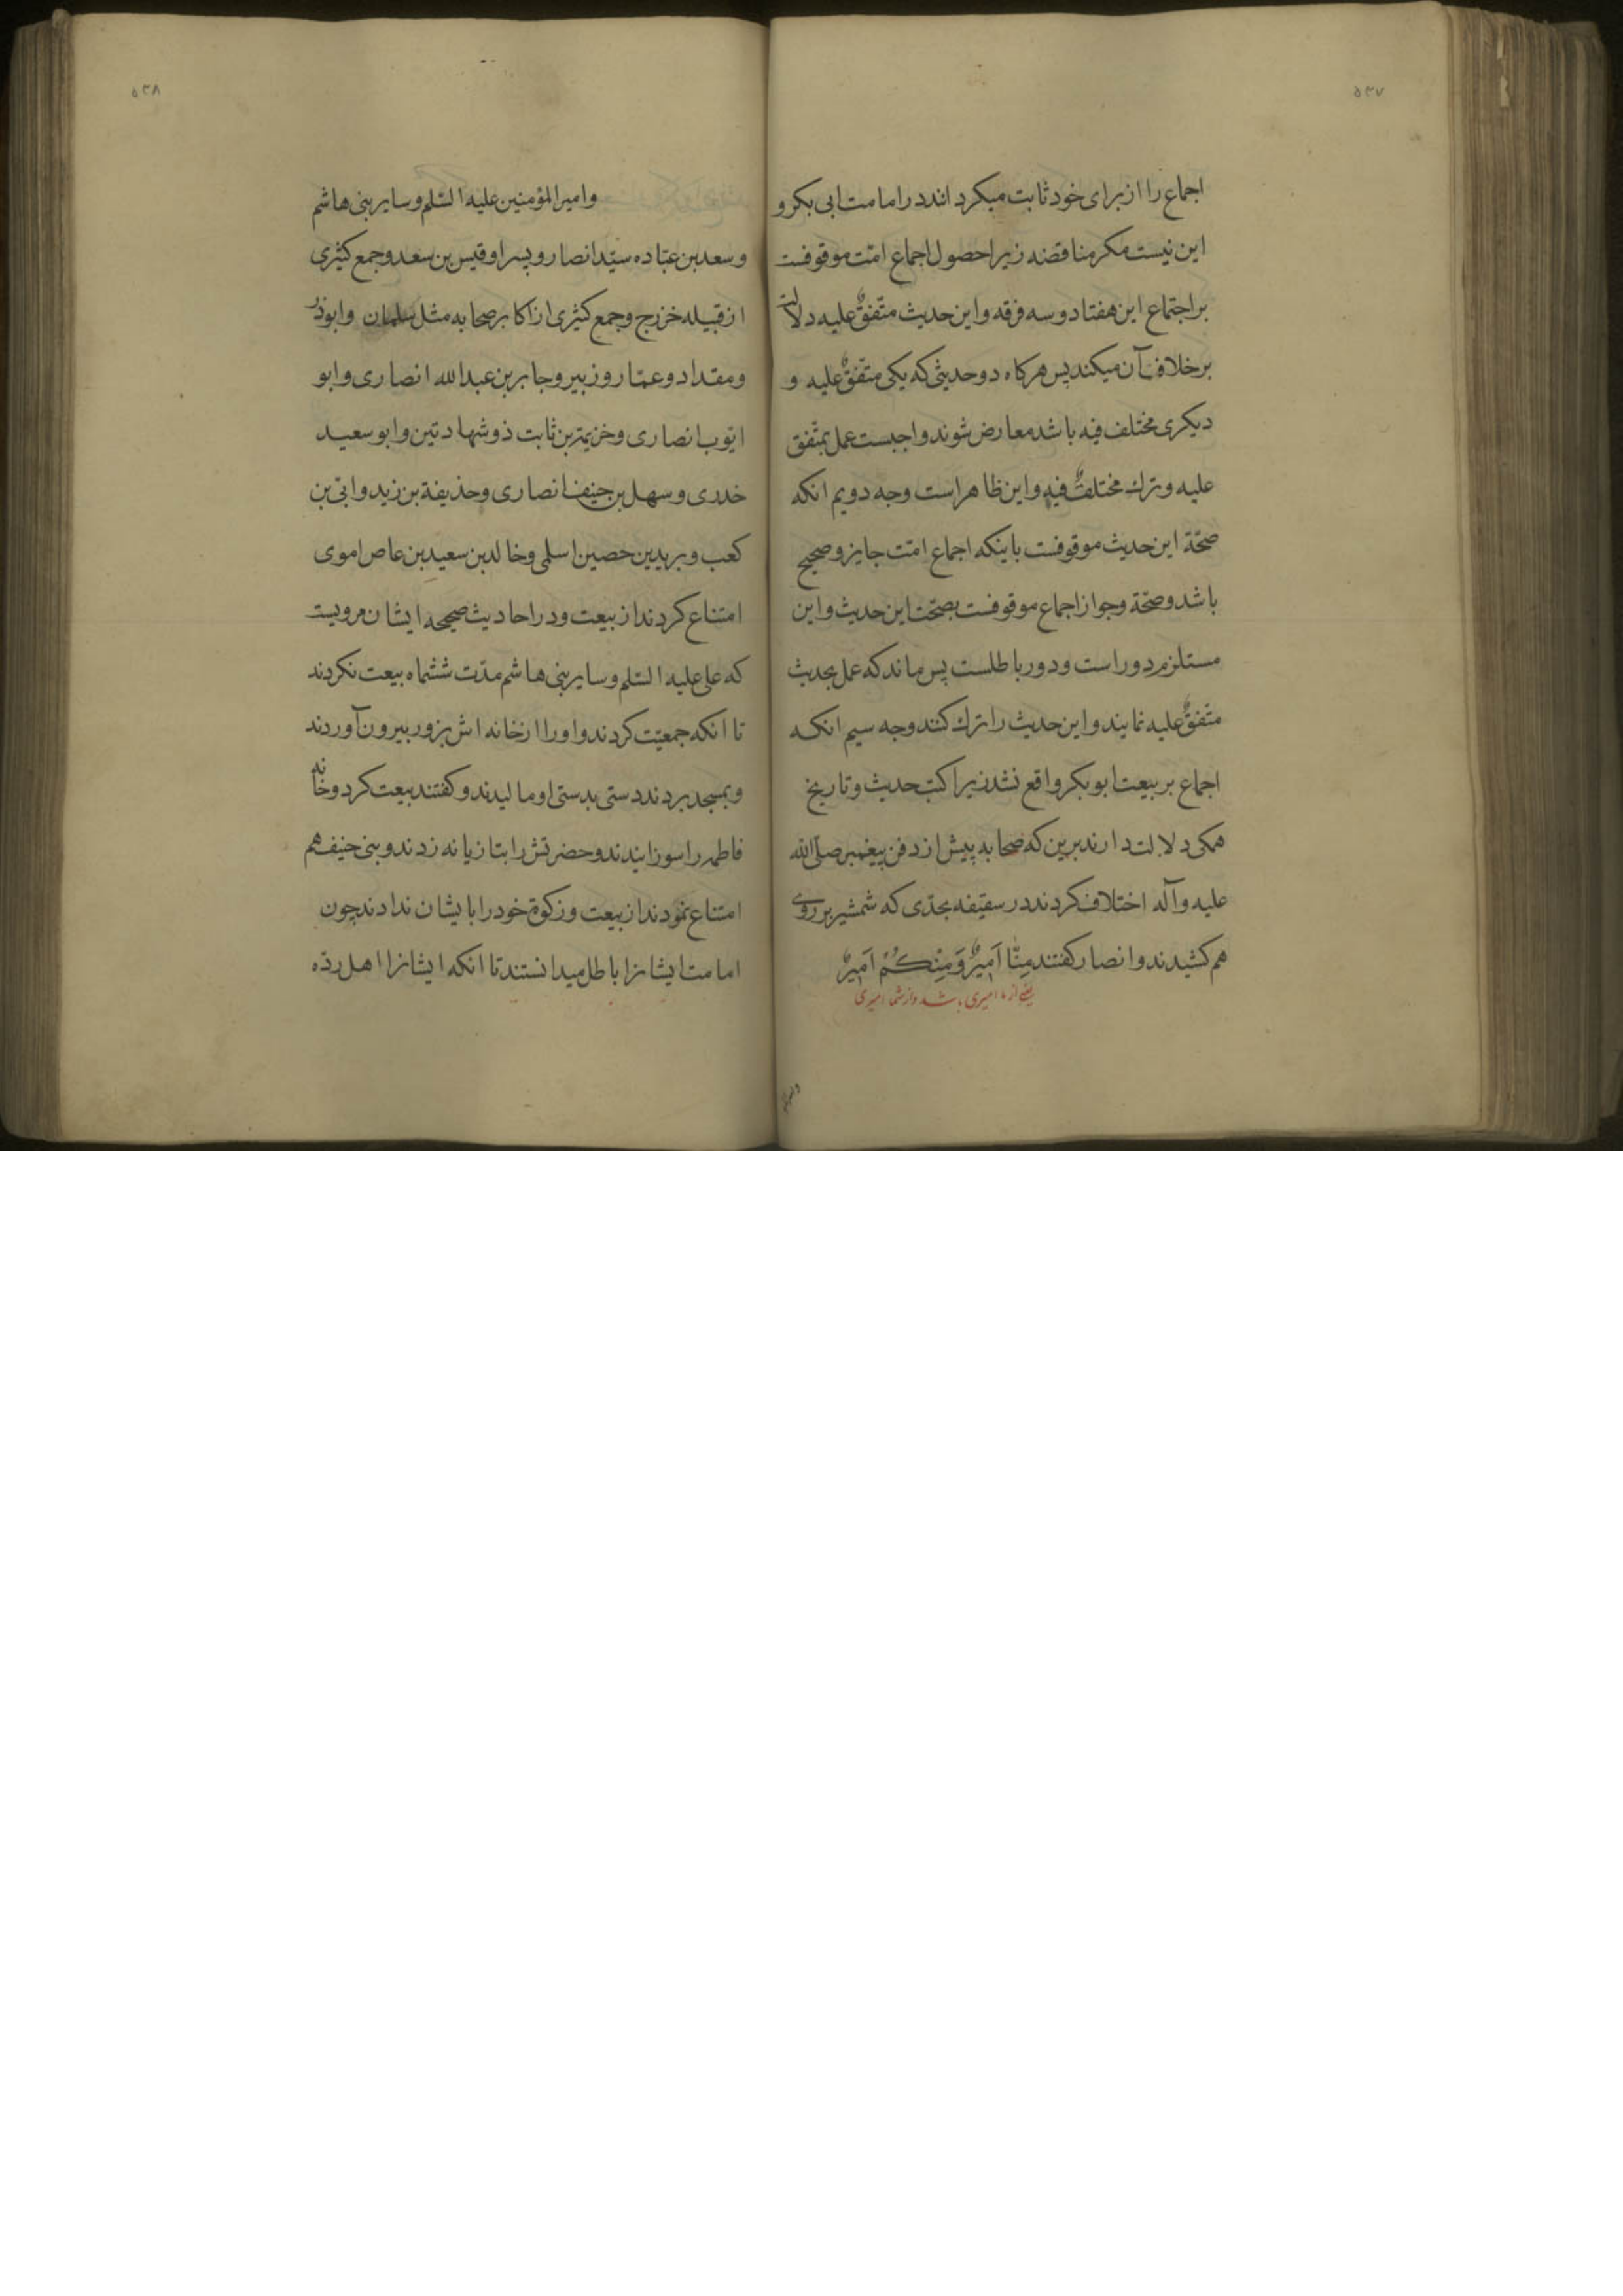 ۵۳۷
اجماع را از برای خود ثابت میکردانند در امامت ابی بکر و
این نیست مکر مناقضه زیرا حصول اجماع امّت موقوفست
بر اجتماع این هفتاد و سه فرقه و این حدیث متّفقٌ علیه دلالت
بر خلاف آن میکند پس هرکاه دو حدیثی که یکی متّفقٌ علیه و
دیکری مختلف فیه باشد معارض شوند واجبست عمل بمتّفق
علیه و ترك مختلفٌ فیه و این ظاهر است وجه دویم انکه
صحّة این حدیث موقوفست باینکه اجماع امّت جایز و صحیح
باشد و صحّة و جواز اجماع موقوفست بصحّت این حدیث و این
مستلزم دور است و دور باطلست پس ماند که عمل بحدیث
متّفقٌ علیه نمایند و این حدیث را ترك کنند وجه سیم انکه
اجماع بر بیعت ابو بکر واقع نشد زیرا کتب حدیث و تاریخ
همکی دلالت دارند برین که صحابه پیش از دفن پیغمبر صلّی الله
علیه وآله اختلاف کردند در سقیفه بحدّی که شمشیر بر روی
هم کشیدند و انصار کفتند مِنّٰا اَمِیرٌ وَمِنْکُمْ اَمِیرٌ
یعنی از ما امیری باشد و از شما امیری
۵۳۸
و امیر المؤمنین علیه السّلم و سایر بنی هاشم
و سعد بن عبّاده سیّد انصار و پسر او قیس بن سعد و جمع کثیری
از قبیله خزرج و جمع کثیری از اکابر صحابه مثل سلمان و ابوذر
و مقداد و عمّار و زبیر و جابر بن عبدالله انصاری و ابو
ایّوب انصاری و خزیمة بن ثابت ذو شهادتین و ابو سعید
خدری و سهل بن حنیف انصاری و حذیفة بن زید و ابیّ بن
کعب و برید بن حصین اسلمی و خالد بن سعید بن عاص اموی
امتناع کردند از بیعت و در احادیث صحیحه ایشان مرویست
که علی علیه السّلم و سایر بنی هاشم مدّت ششماه بیعت نکردند
تا انکه جمعیّت کردند و او را از خانه اش بزور بیرون آوردند
و بمسجد بردند دستی بدستی او مالیدند و کفتند بیعت کرد و خانه
فاطمه را سوزانیدند و حضرتش را بتازیانه زدند و بنی حنیف هم
امتناع نمودند از بیعت و زکوة خود را بایشان ندادند چون
امامت ایشانرا باطل میدانستند تا انکه ایشانرا اهل ردّه